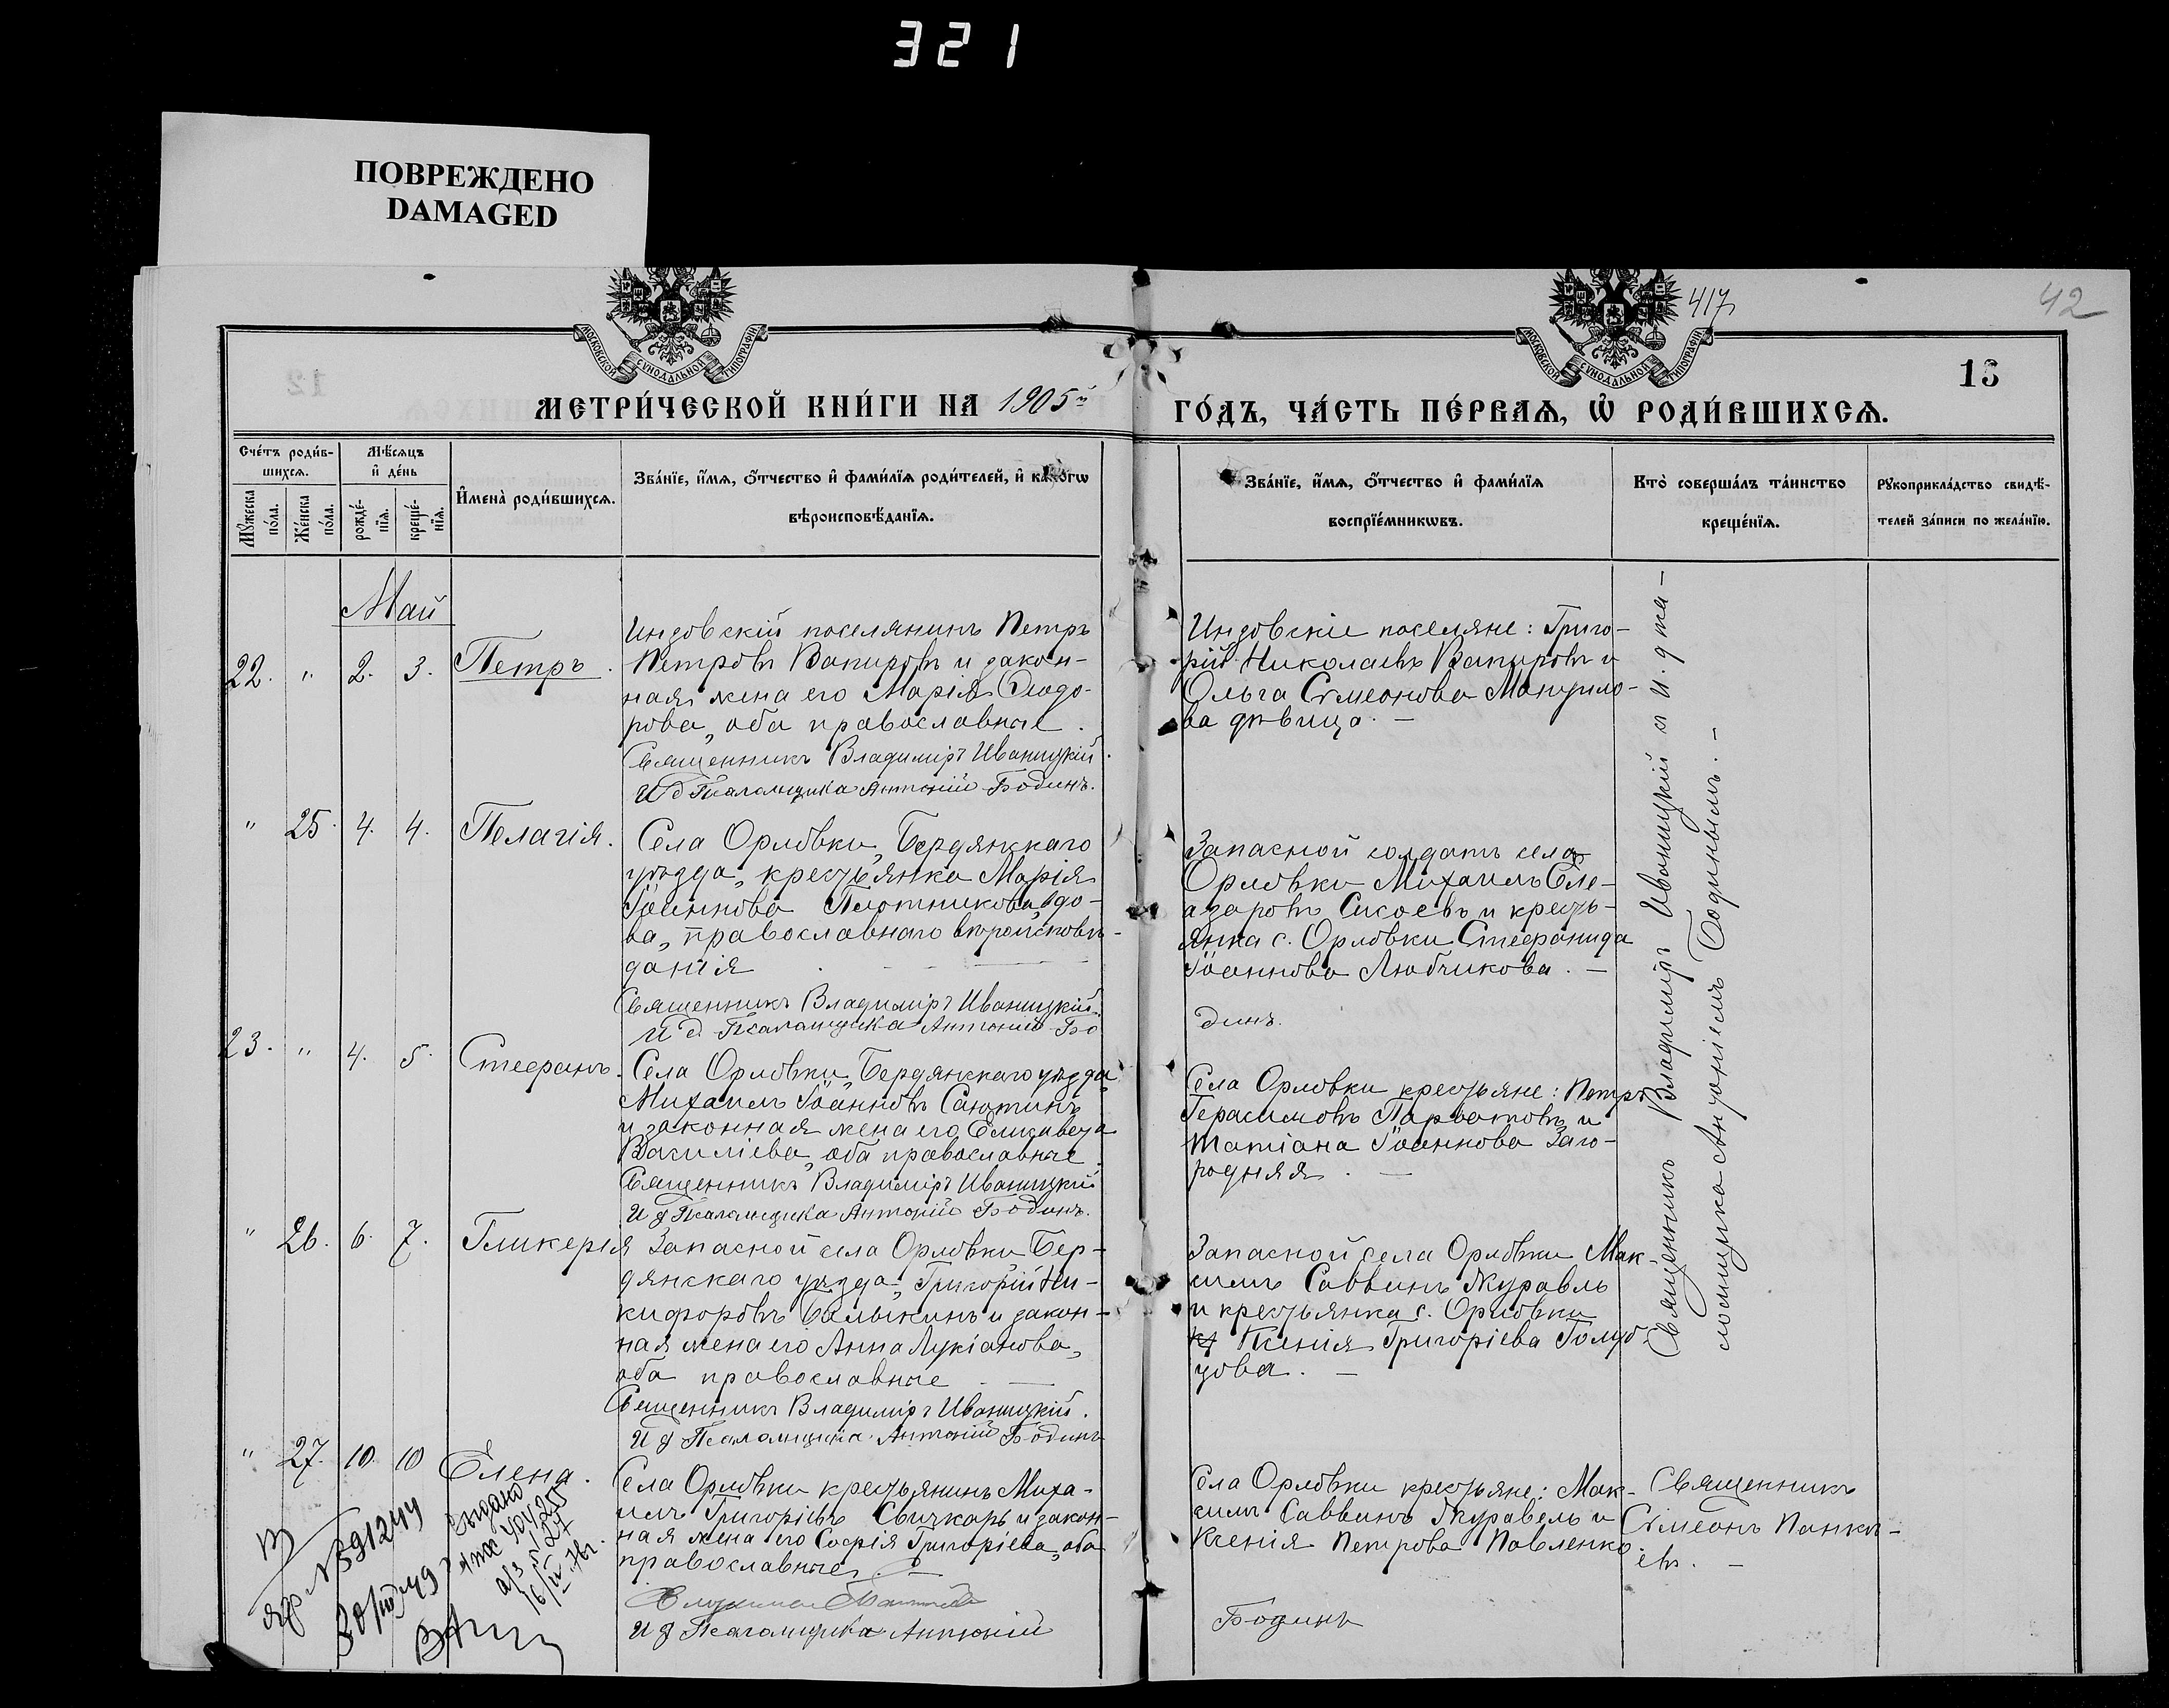 321
ПОВРЕЖДЕНО
DAMAGED
МОСКОВСКОЙ СѴНОДАЛЬНОЙ ТИПОГРАФІИ
МОСКОВСКОЙ СѴНОДАЛЬНОЙ ТИПОГРАФІИ
417
42
13
МЕТРИ́ЧЕСКОЙ КНИ́ГИ НА 1905й
ГО́ДЪ, ЧА́СТЬ ПЕ́РВАѦ, Ѡ РОДИ́ВШИХСѦ.
Сче́тъ роди́в-
шихсѧ.
Мꙋ́жеска по́ла.
Же́нска по́ла.
Мѣ́сѧцъ
и҆ де́нь
рожде́-
нїѧ.
креще́-
нїѧ.
И҆мена̀ роди́вшихсѧ.
Зва́нїе, и҆́мѧ, ѻ҆́тчество и҆ фами́лїѧ роди́телей, и҆ како́гѡ
вѣроисповѣ́данїѧ.
Зва́нїе, и҆́мѧ, ѻ҆́тчество и҆ фами́лїѧ
воспрїе́мникѡвъ.
Кто̀ соверша́лъ та́инство
креще́нїѧ.
Рꙋкоприкла́дство свидѣ́-
телей за́писи по жела́нїю.
Май
22. " 2. 3. Петръ.
Индовскій поселянинъ Петръ
Петровъ Вапировъ и закон-
ная жена его Марія Ѳеодо-
рова, оба православные.
Священникъ Владиміръ Иваницкій.
И д Псаломщика Антоній Бодинъ.
Индовскіе поселяне: Григо-
рій Николаевъ Вапировъ и
Ольга Сѵмеонова Мануило-
ва дѣвица. —
" 25 4. 4. Пелагія.
Села Орловки, Бердянскаго
уѣзда, крестьянка Марія
Іоаннова Плотникова, вдо-
ва, православнаго вѣроисповѣ-
данія
Священникъ Владиміръ Иваницкій.
И д Псаломщика Антоній Бо
динъ.
Запасной солдатъ села
Орловки Михаилъ Еле-
азаровъ Сисоевъ и кресть-
янка с. Орловки Стефанида
Іоаннова Любчикова. —
23. " 4. 5. Стефанъ.
Села Орловки, Бердянскаго уѣзда,
Михаилъ Іоанновъ Саютинъ
и законная жена его Елисавета
Василіева, оба православные.
Священникъ Владиміръ Иваницкій
И д Псаломщика Антоній Бодинъ.
Села Орловки крестьяне: Петръ
Герасимовъ Парватовъ и
Татіана Іоаннова Заго-
родняя. —
" 26. 6. 7. Гликерія
Запасной села Орловки, Бер-
дянскаго уѣзда, Григорій Ни-
кифоровъ Балыкинъ и закон-
ная жена его Анна Лукіанова,
оба православные —
Священникъ Владиміръ Иваницкій.
И д Псаломщика Антоній Бодинъ
Запасной села Орловки Мак-
симъ Саввинъ Журавль
и крестьянка с. Орловки
Ксенія Григоріева Голуб-
цова. —
Священникъ Владиміръ Иваницкій и И. д пса-
ломщика Антоніемъ Бодинымъ. —
" 27. 10. 10 Елена.
Села Орловки крестьянинъ Миха-
илъ Григоріевъ Свичкарь и закон-
ная жена его Софія Григоріева, оба
православные. —
И д Псаломщика Антоній
Бодинъ
Села Орловки крестьяне: Мак-
симъ Саввинъ Журавель и
Ксенія Петрова Павленко
Священникъ
Сѵмеонъ Панкѣ-
евъ. —